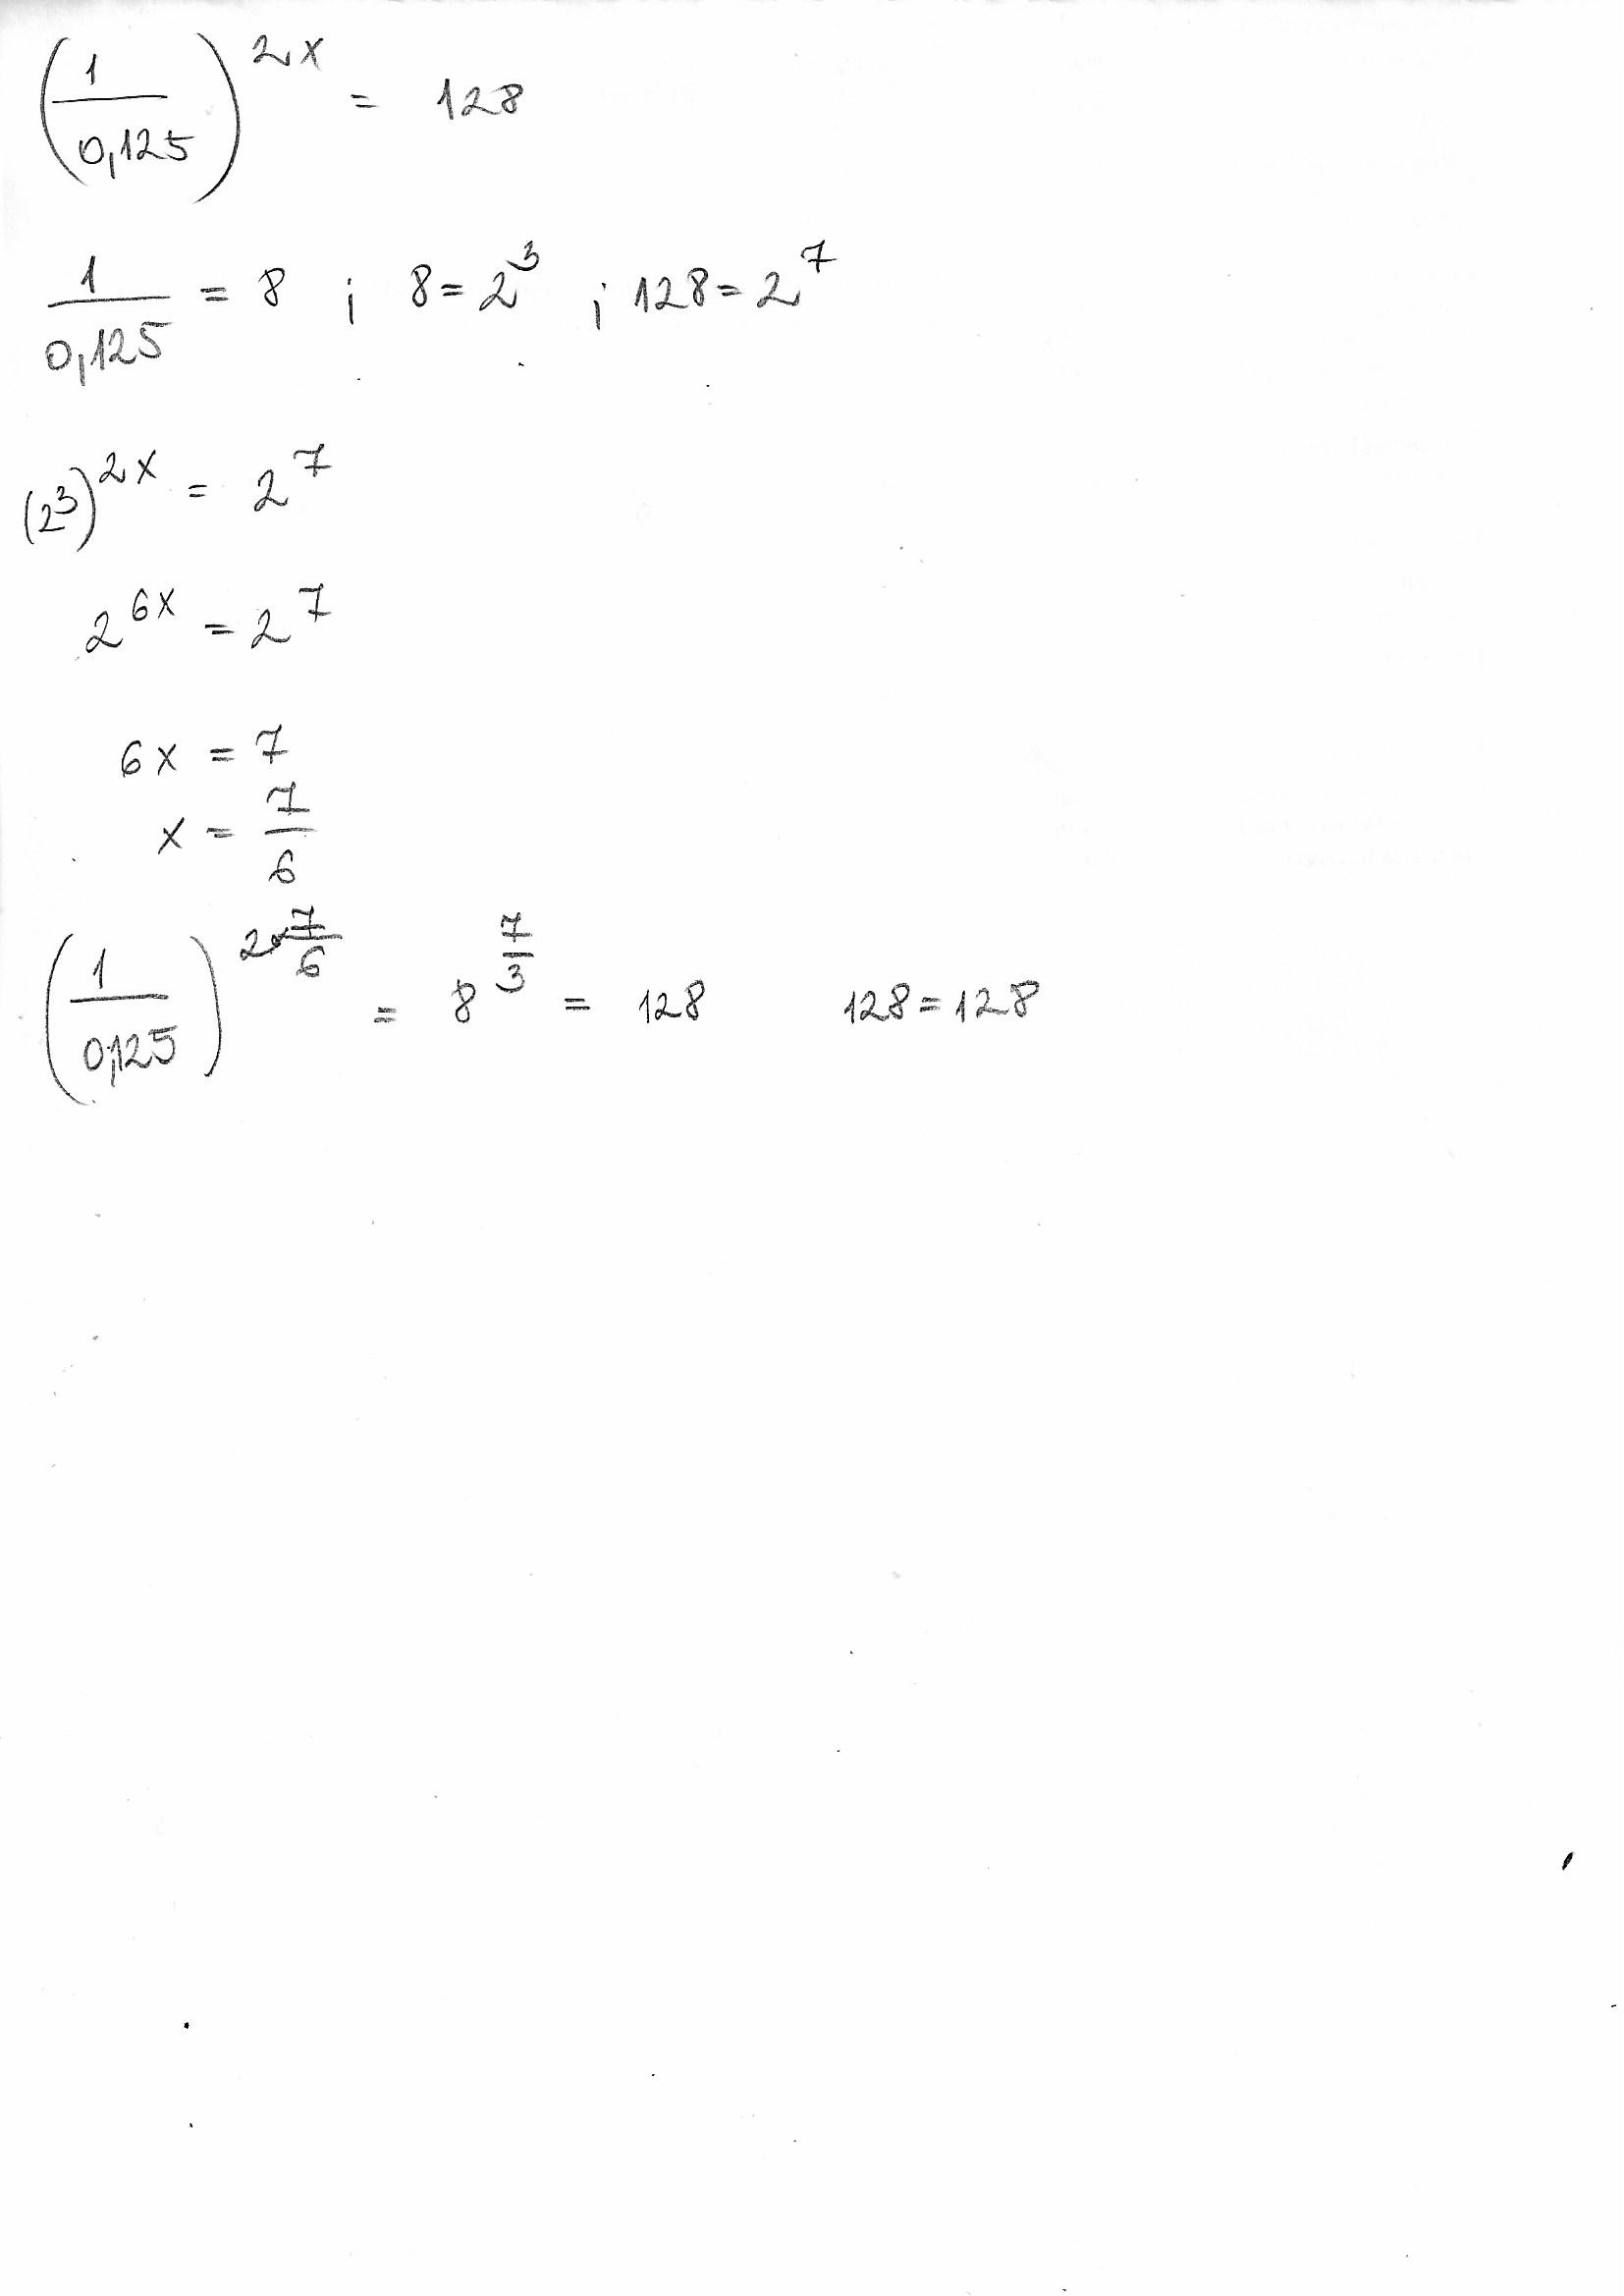 (1/0,125)^2x = 128
1/0,125 = 8 ; 8=2^3 ; 128=2^7
(2^3)^2x = 2^7
2^6x = 2^7
6x = 7
x = 7/6
(1/0,125)^2·7/6 = 8^7/3 = 128 128=128